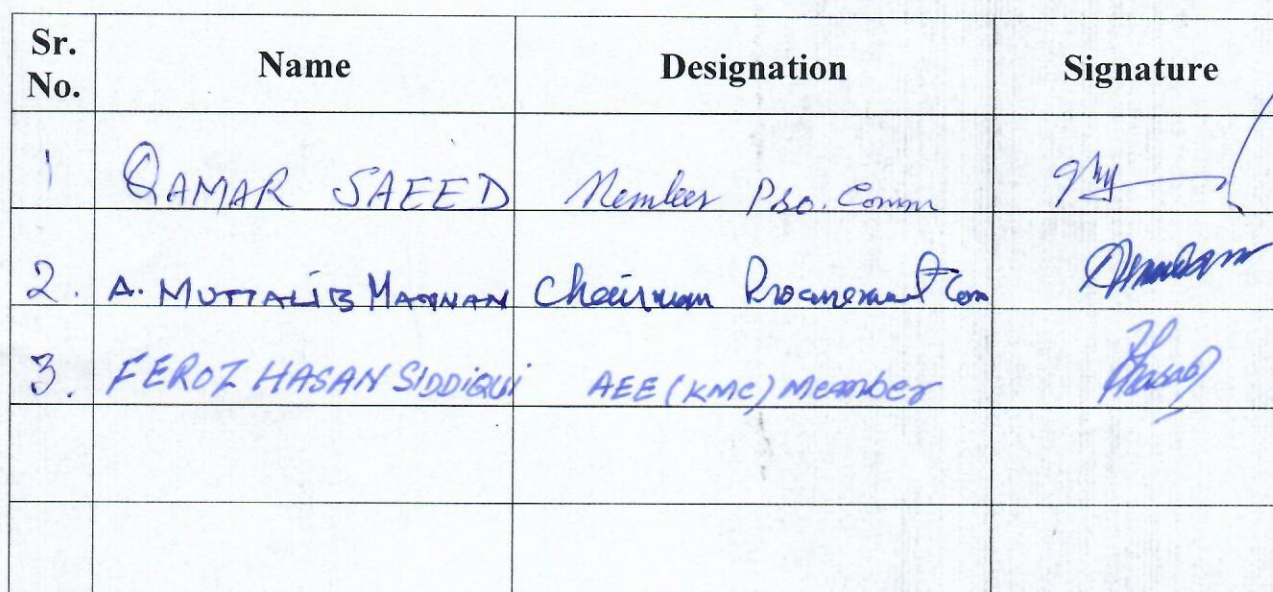 Sr. No. Name Designation Signature
1 QAMAR SAEED Member Pro. Comm
2. A. MUTTALIB Chairman Procurement Com
3. FEROZ HASAN SIDDIQUI AEE (KMC) Member